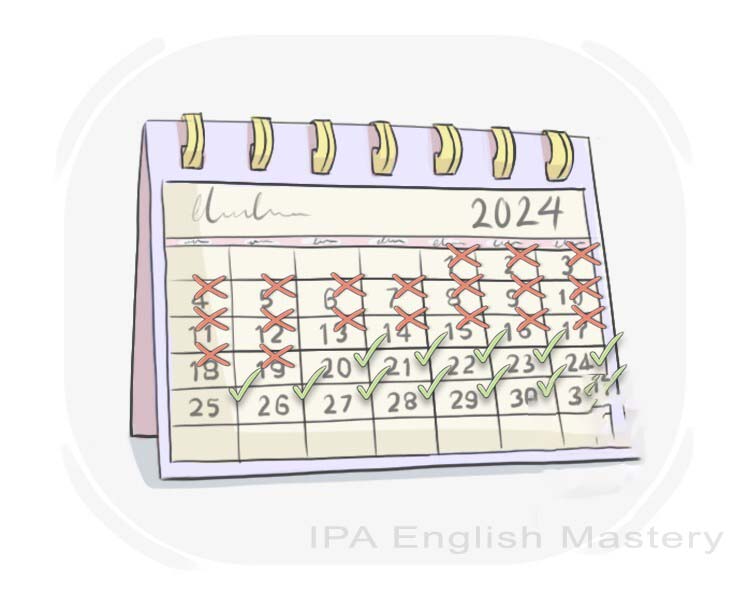 2024
1 2 3
4 5 6 7 8 9 10
11 12 13 14 15 16 17
18 19 20 21 22 23 24
25 26 27 28 29 30
IPA English Mastery